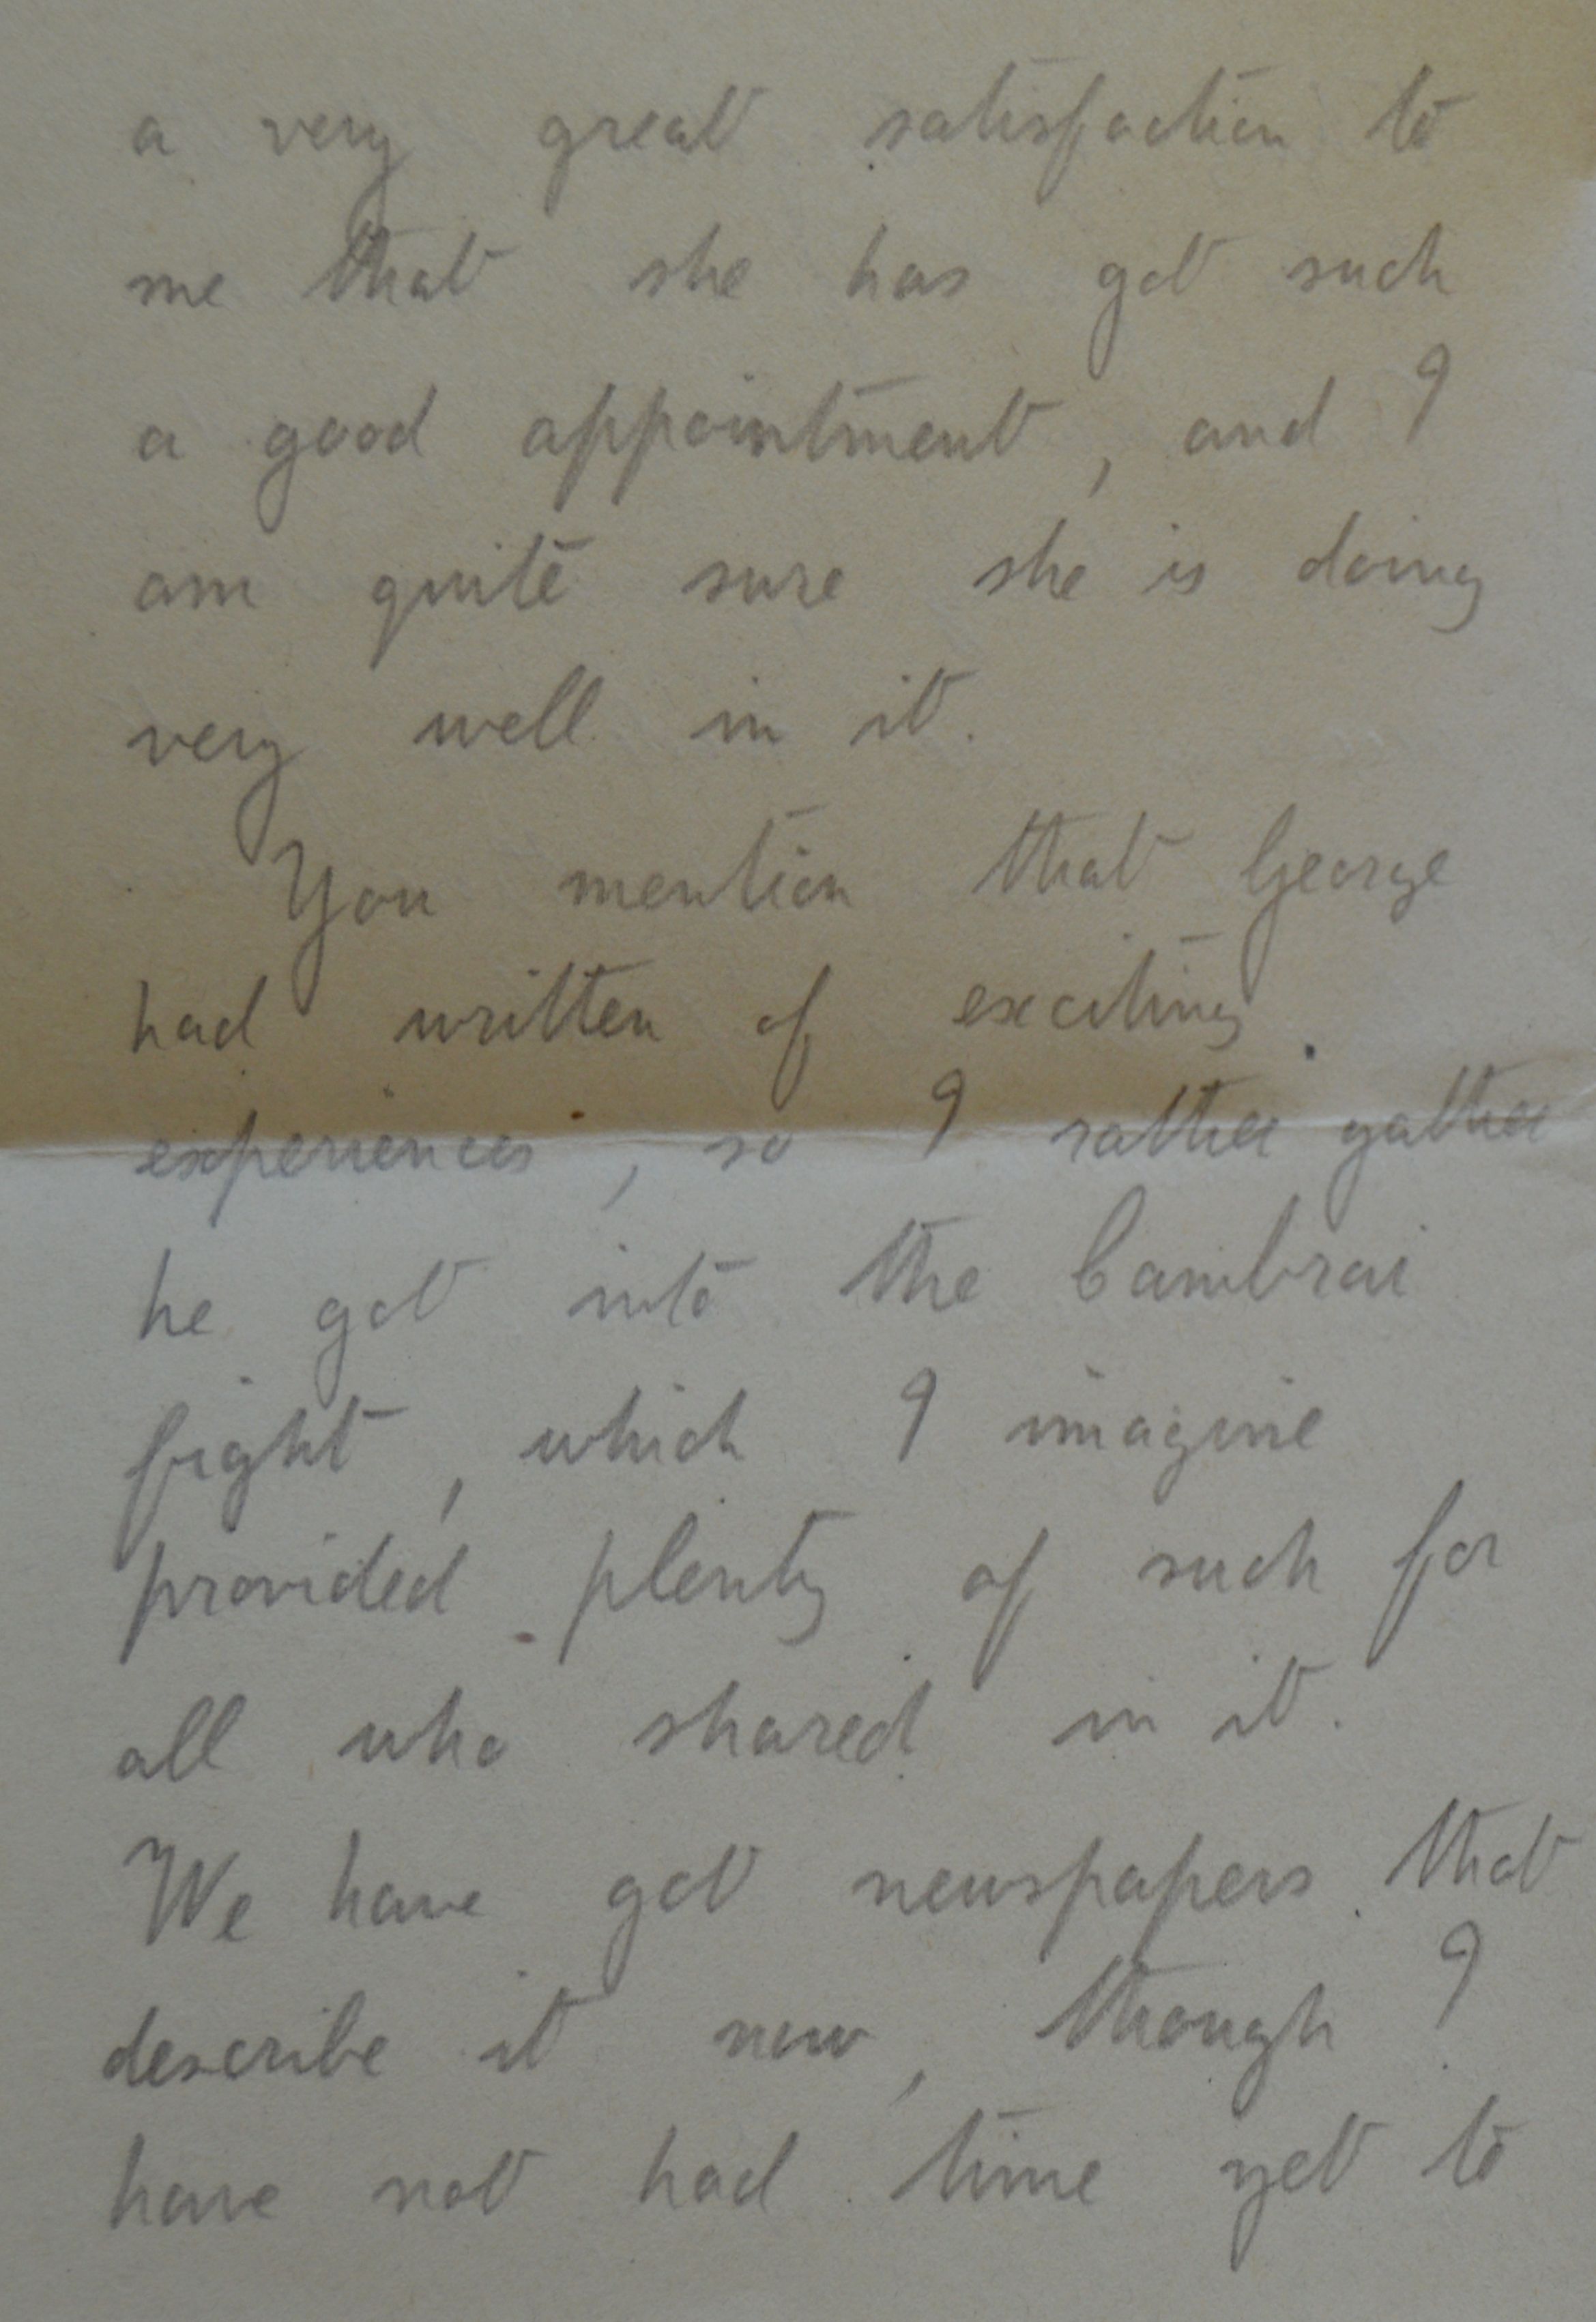 a very great satisfaction to
me that she has got such
a good appointment, and I
am quite sure she is doing
very well in it.
You mention that George
had written of exciting
experiences, so I rather gather
he got into the Cambrai
fight, which I imagine
provided plenty of such for
all who shared in it.
We have got newspapers that
describe it now, though I
have not had time yet to